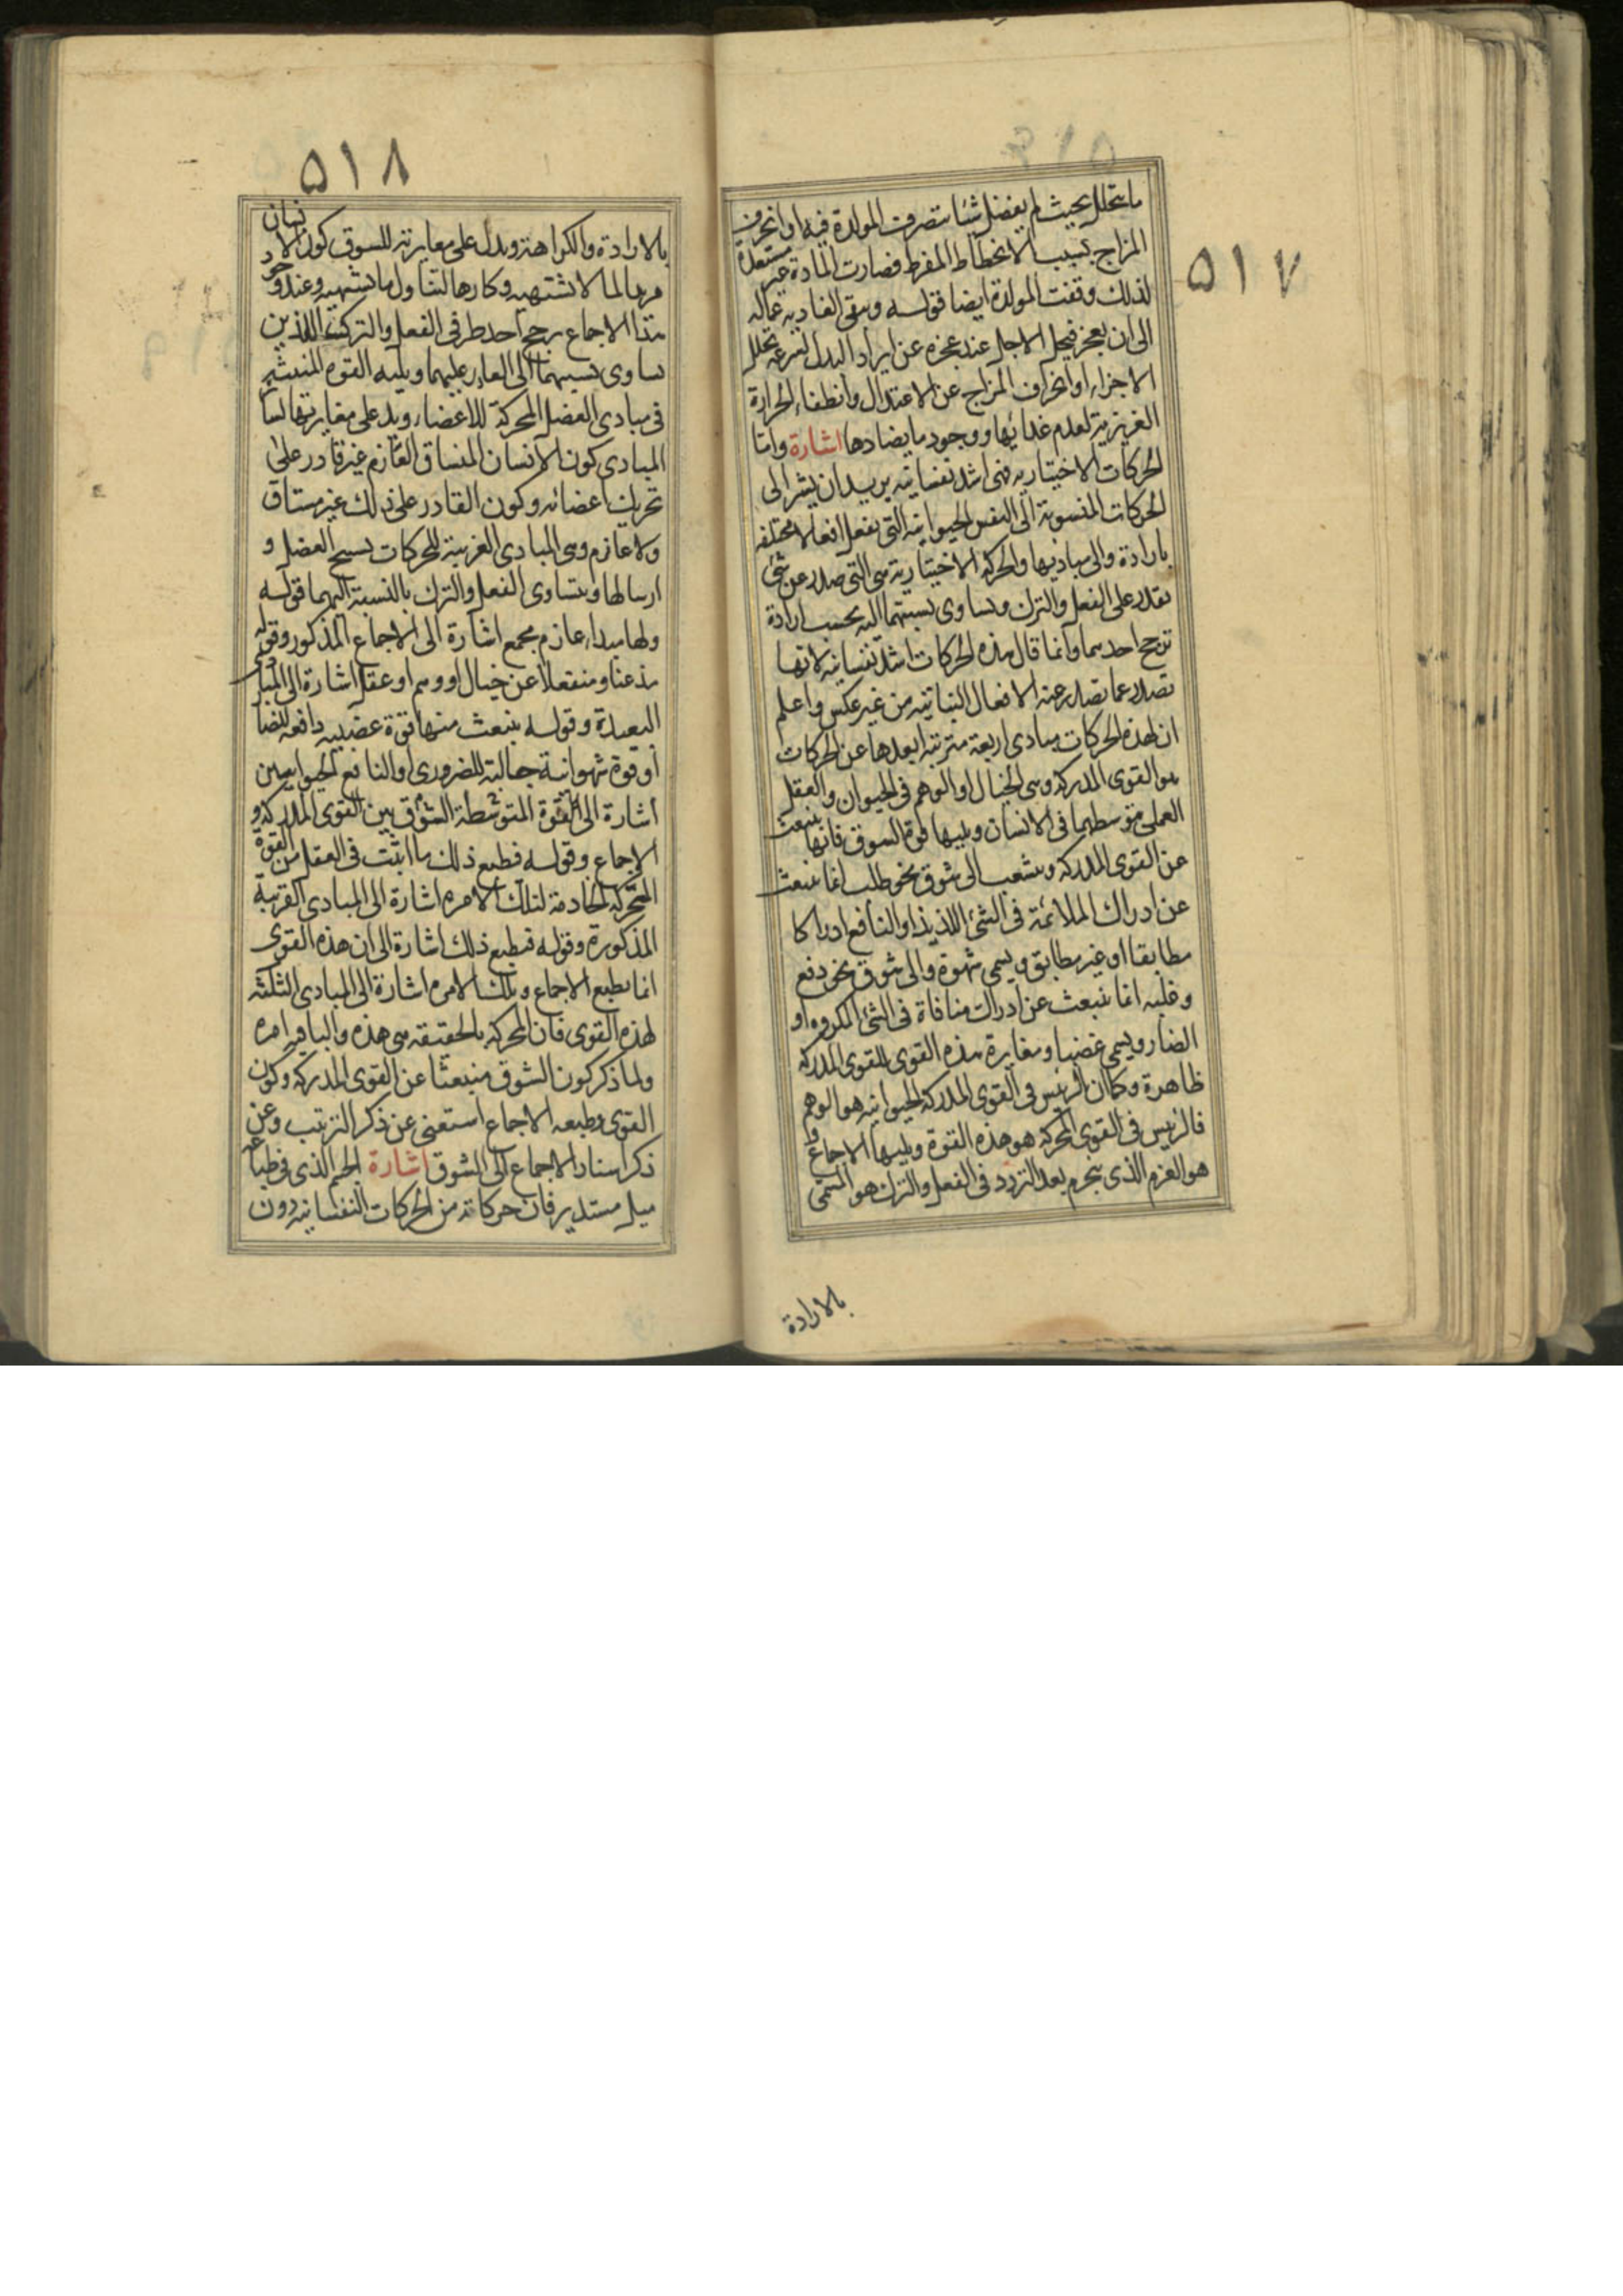 ۵۱۷
ما يتحلل بحيث لم يفضل شيئا تتصرف المولدة فيه او انحرف
المزاج بسبب الانحطاط المفرط فصارت المادة غير مستعدة
لذلك وقفت المولدة ايضا قوله وتبقى الغاذية عمالة
الى ان تعجز فيحل الاجل عند عجزه عن ايراد البدل لسرعة تحلل
الاجزاء او انحراف المزاج عن الاعتدال وانطفاء الحرارة
الغريزية لعدم غذائها ووجود ما يضادها اشارة واما
الحركات الاختيارية فهى اشد نفسانية يريد ان يشير الى
الحركات المنسوبة الى النفس الحيوانية التى تفعل افعالا مختلفة
بارادة والى مباديها والحركة الاختيارية هى التى تصدر عن شئ
يقدر على الفعل والترك وتساوى نسبتهما اليه بحسب ارادة
ترجح احدهما وانما قال هذه الحركات اشد نفسانية لانها
تصدر عما تصدر عنه الافعال النباتية من غير عكس واعلم
ان لهذه الحركات مبادى اربعة مترتبة ابعدها عن الحركات
هو القوى المدركة وهى الخيال او الوهم فى الحيوان والعقل
العملى بتوسطهما فى الانسان ويليها قوة الشوق فانها تنبعث
عن القوى المدركة وتشعب الى شوق نحو طلب انما ينبعث
عن ادراك الملائمة فى الشئ اللذيذ او النافع ادراكا
مطابقا او غير مطابق ويسمى شهوة والى شوق نحو دفع
وغلبه انما ينبعث عن ادراك منافاة فى الشئ المكروه او
الضار ويسمى غضبا ومغايرة هذه القوى للقوى المدركة
ظاهرة وكما ان الرئيس فى القوى المدركة الحيوانية هو الوهم
فالرئيس فى القوى المحركة هو هذه القوة ويليها الاجماع و
هو العزم الذى ينجزم بعد التردد فى الفعل والترك هو المسمى
بالارادة
۵۱۸
بالارادة والكراهة ويدل على مغايرته للشوق كون الانسان
مريدا لما لا يشتهيه وكارها لتناول ما يشتهيه وعند وجود
هذا الاجماع يرجح احد طرفى الفعل والترك اللذين
تساوى نسبتهما الى القادر عليهما ويليه القوة المنبثة
فى مبادى العضل المحركة للاعضاء ويدل على مغايرتها لسائر
المبادى كون الانسان المشتاق العازم غير قادر على
تحريك اعضائه وكون القادر على ذلك غير مشتاق
ولا عازم وهى المبادى القريبة للحركات تشنج العضل و
ارسالها وتتساوى الفعل والترك بالنسبة اليهما قوله
ولها مبداء عازم مجمع اشارة الى الاجماع المذكور وقوله
مذعنا ومنفعلا عن خيال او وهم او عقل اشارة الى المبادى
البعيدة وقوله ينبعث منها قوة غضبية دافعة للضار
او قوة شهوانية جالبة للضرورى او النافع الحيوانيين
اشارة الى القوة المتوسطة الشوق بين القوى المدركة و
الاجماع وقوله فيطيع ذلك ما انبث فى العضل من القوة
المحركة الخادمة لتلك الامرة اشارة الى المبادى القريبة
المذكورة وقوله فيطيع ذلك اشارة الى ان هذه القوى
انما تطيع الاجماع وتلك الامرة اشارة الى المبادى الثلثة
لهذه القوى فان المحركة بالحقيقة هى هذه والباقية امره
ولما ذكر كون الشوق منبعثا عن القوى المدركة وكون
القوى مطيعه الاجماع استغنى عن ذكر الترتيب وعن
ذكر اسناد الاجماع الى الشوق اشارة الجسم الذى فى طباعه
ميل مستدير فان حركاته من الحركات النفسانية دون